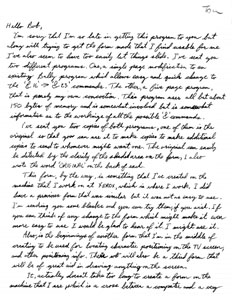 Tom
Hello Bob,
I'm sorry that I'm so late in getting this program to you but
along with trying to get the form made that I find useable for me
I've also seem to have too easily let things slide. I've sent you
two different programs. One, a single page modification to an
existing Bally program which allows easy and quick change to
the
This program uses all but about
150 bytes of memory and is somewhat involved but is somewhat
informative as to the workings of all the possible commands.
I've sent you two copies of both programs, one of them is the
original so that you can use it to make copies to make additional
copies to send to whomever might want one. The original can easily
be detected by the clarity of the shaded area on the form, I also
wrote the word "ORIGINAL" on the back of each.
This form, by the way, is something that I've created on the
machine that I work on at XEROX, which is where I work. I did
have a previous form that was similar but it was not as easy to use.
I'm sending you some blanks and you can try them if you wish. If
you can think of any change to the form which might make it even
more easy to use I would be glad to hear of it. I might use it.
Also, in the beginnings of another form that I'm in the middle of
creating to be used for locating character positioning on the TV screen
and other positioning info. There will also be a third form that
will be of great use in drawing anything on the screen.
It actually doesn't take too long to create a form on the
machine that I use which is a cross between a computer and a very